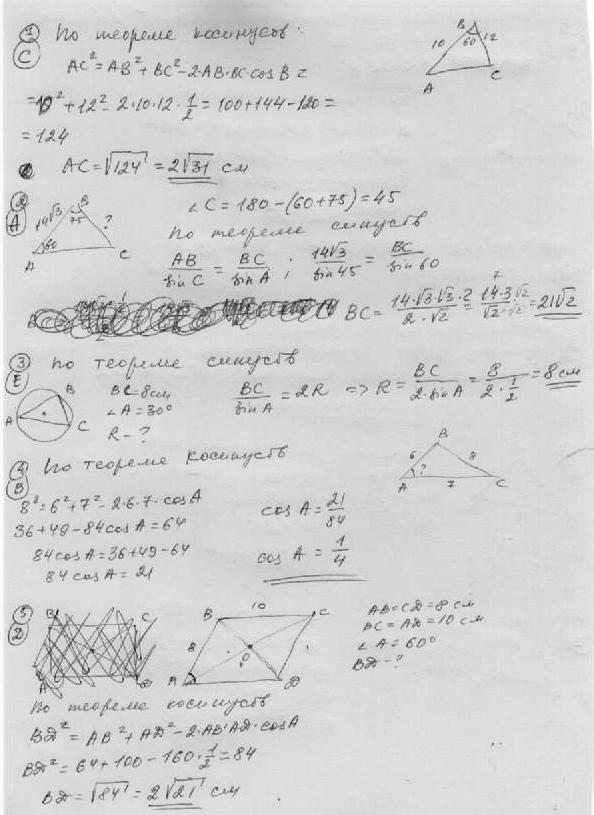 1 По теореме косинусов:
C
AC² = AB² + BC² - 2·AB·BC·cos B =
= 10² + 12² - 2·10·12·1/2 = 100 + 144 - 120 =
= 124
AC = √124 = 2√31 см
B
10 60 12
A C
2
A
B
14√3 75 ?
60
A C
∠C = 180 - (60 + 75) = 45
По теореме синусов
AB/sin C = BC/sin A ; 14√3/sin 45 = BC/sin 60
BC = 14·√3·√3·2/2·√2 = 14·3√2/√2·√2 = 21√2
7
3 по теореме синусов
E
B
A C
BC = 8 см
∠A = 30°
R - ?
BC/sin A = 2R => R = BC/2·sin A = 8/2·1/2 = 8 см
4 По теореме косинусов
B
8² = 6² + 7² - 2·6·7·cos A
36 + 49 - 84 cos A = 64
84 cos A = 36 + 49 - 64
84 cos A = 21
cos A = 21/84
cos A = 1/4
B
6 8
?
A 7 C
5
D
B C
A D
10
B C
8
O
A D
AB = CD = 8 см
BC = AD = 10 см
∠A = 60°
BD - ?
По теореме косинусов
BD² = AB² + AD² - 2·AB·AD·cos A
BD² = 64 + 100 - 160·1/2 = 84
BD = √84 = 2√21 см